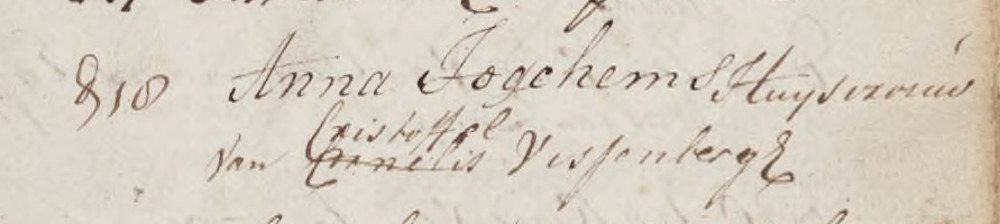 818 Anna Jogchems Huysvrouw
Cristoffel
van Cornelis Vissenbergh